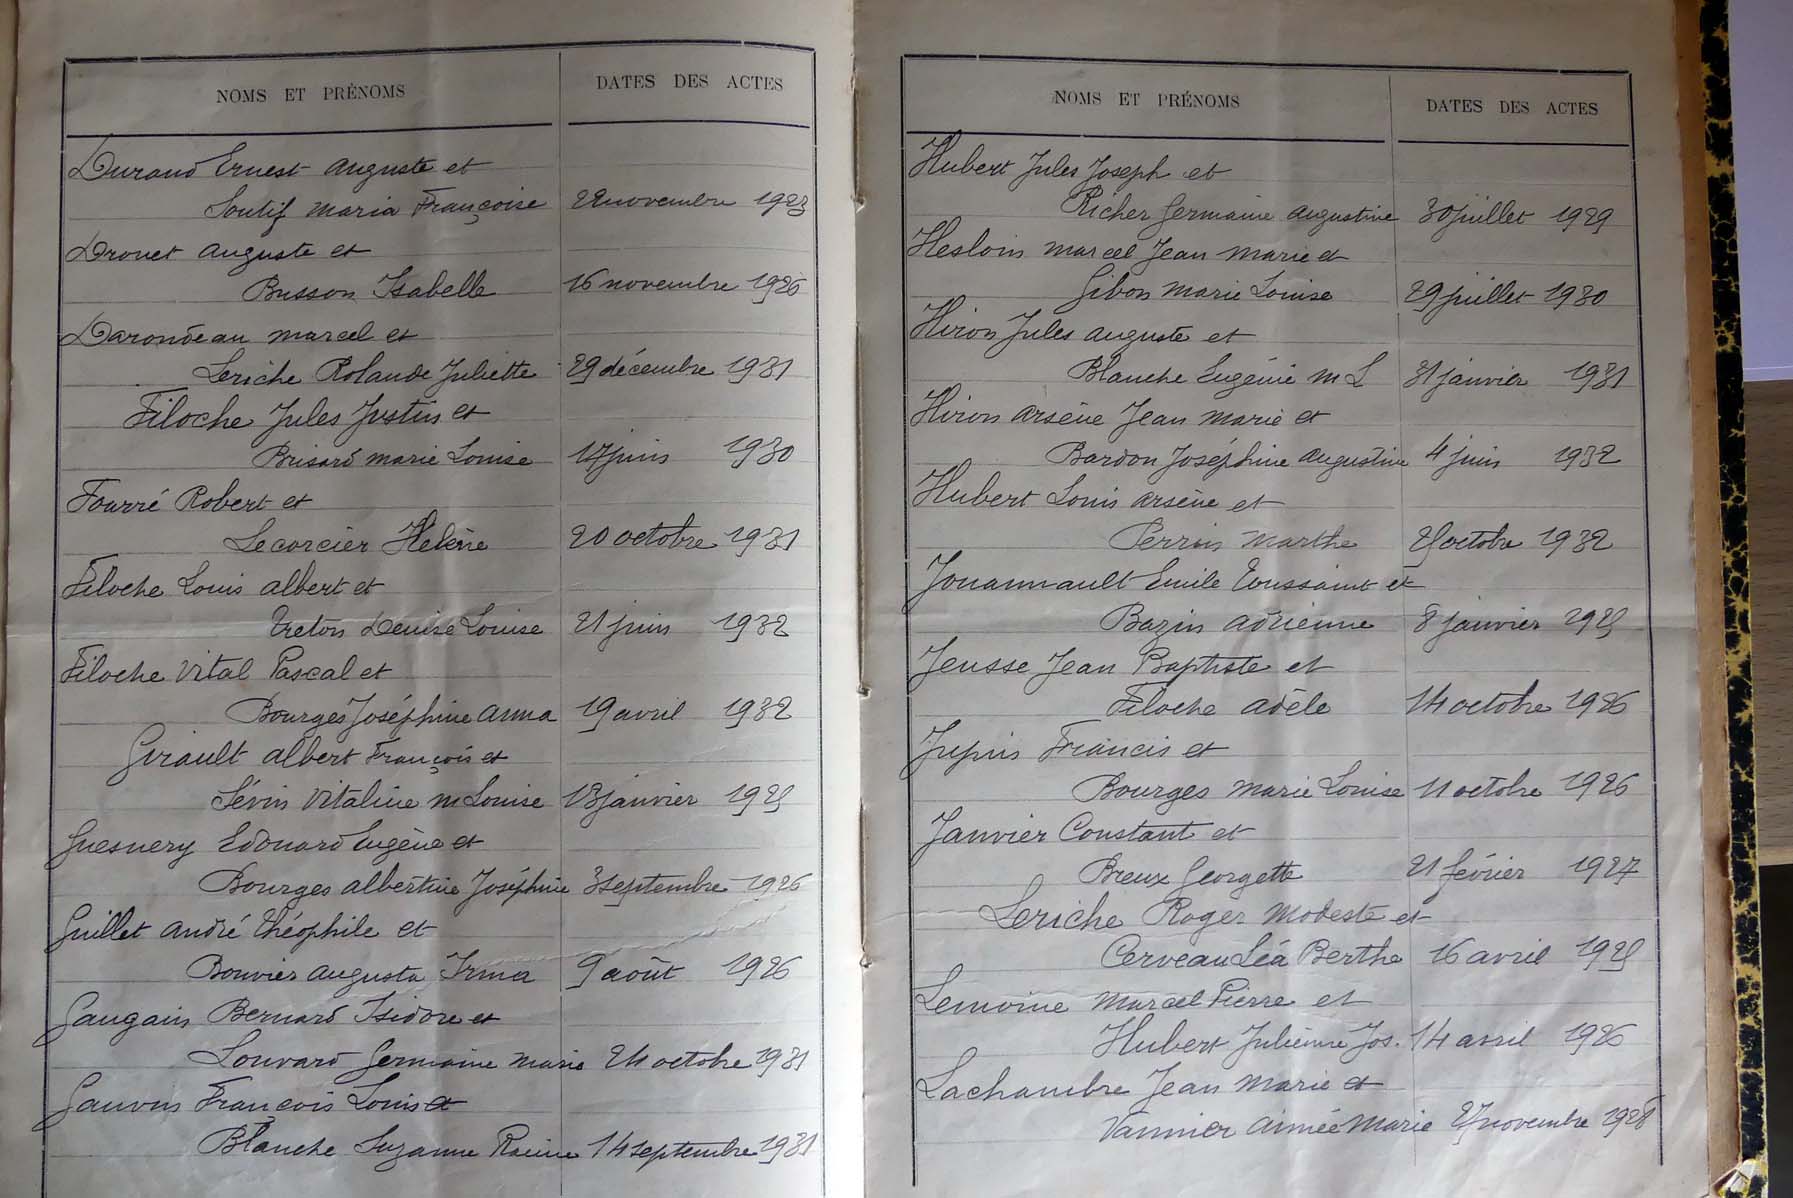 NOMS ET PRÉNOMS DATES DES ACTES
Durand Ernest Auguste et
Soutif Maria Françoise 22 novembre 1923
Drouet Auguste et
Busson Isabelle 16 novembre 1926
Darondeau Marcel et
Leriche Rolande Juliette 29 décembre 1931
Filoche Jules Justin et
Brisard Marie Louise 17 juin 1930
Fourré Robert et
Lecorcier Helène 20 octobre 1931
Filoche Louis Albert et
Treton Denise Louise 21 juin 1932
Filoche Vital Pascal et
Bourges Joséphine Anna 19 avril 1932
Girault Albert François et
Sévin Vitaline M Louise 13 janvier 1925
Guesnery Edouard Eugène et
Bourges Albertine Joséphine 3 septembre 1926
Guillet André Théophile et
Bouvier Augusta Irma 9 août 1926
Gaugain Bernard Isidore et
Louvard Germaine Marie 24 octobre 1931
François Louis et
Blanche Suzanne 14 septembre 1931
NOMS ET PRÉNOMS DATES DES ACTES
Hubert Jules Joseph et
Richer Germaine Augustine 30 juillet 1929
Hesloin Marcel Jean Marie et
Gibon Marie Louise 29 juillet 1930
Hiron Jules Auguste et
Blanche Eugénie M L 31 janvier 1931
Hiron Arsène Jean Marie et
Bardon Joséphine Augustine 4 juin 1932
Hubert Louis Arsène et
Perrin Marthe octobre 1932
Jouannault Emile Toussaint et
Bazin Adrienne 8 janvier 1925
Jeusse Jean Baptiste et
Filoche Adèle 14 octobre 1926
Jupin Francis et
Bourges Marie Louise 11 octobre 1926
Janvier Constant et
Breux Georgette 21 février 1927
Leriche Roger Modeste et
Cerveau Léa Berthe 16 avril 1925
Lemoine Marcel Pierre et
Hubert Julienne Jos. 14 avril 1926
Lachambre Jean Marie et
Vannier Aimée Marie 27 novembre 1928